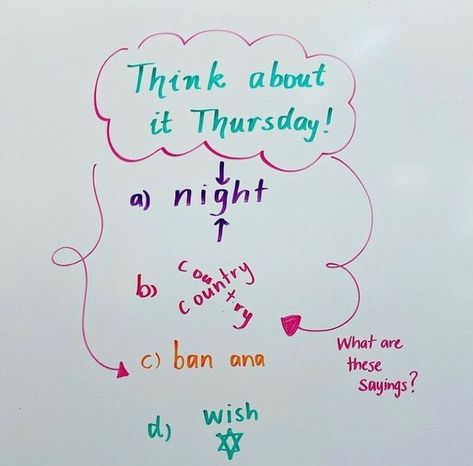 Think about
it Thursday!
a) night
b) country
country
c) ban ana
What are
these
sayings?
d) wish